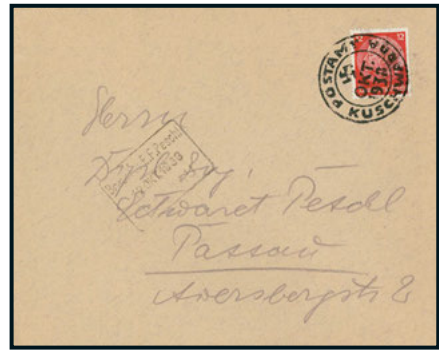 12
POSTAMT KUSCHWARDA
15. OKT. 1938
Herrn
Dipl. Ing.
Peschl
Passau
Auersbergstr 2